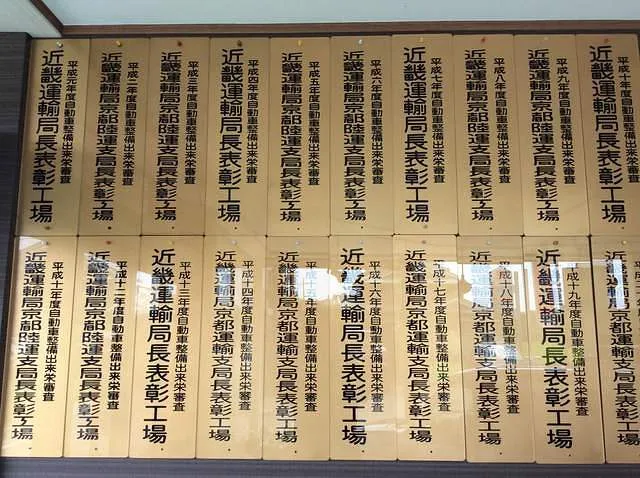 平成元年度自動車整備出来栄審査
近畿運輸局長表彰工場
平成二年度自動車整備出来栄審査
近畿運輸局京都陸運支局長表彰工場
平成三年度自動車整備出来栄審査
近畿運輸局京都陸運支局長表彰工場
平成四年度自動車整備出来栄審査
近畿運輸局京都陸運支局長表彰工場
平成五年度自動車整備出来栄審査
近畿運輸局京都陸運支局長表彰工場
平成六年度自動車整備出来栄審査
近畿運輸局京都陸運支局長表彰工場
平成七年度自動車整備出来栄審査
近畿運輸局長表彰工場
平成八年度自動車整備出来栄審査
近畿運輸局京都陸運支局長表彰工場
平成九年度自動車整備出来栄審査
近畿運輸局京都陸運支局長表彰工場
平成十年度自動車整備出来栄審査
近畿運輸局長表彰工場
平成十一年度自動車整備出来栄審査
近畿運輸局京都陸運支局長表彰工場
平成十二年度自動車整備出来栄審査
近畿運輸局京都陸運支局長表彰工場
平成十三年度自動車整備出来栄審査
近畿運輸局長表彰工場
平成十四年度自動車整備出来栄審査
近畿運輸局京都運輸支局長表彰工場
平成十五年度自動車整備出来栄審査
近畿運輸局京都運輸支局長表彰工場
平成十六年度自動車整備出来栄審査
近畿運輸局長表彰工場
平成十七年度自動車整備出来栄審査
近畿運輸局京都運輸支局長表彰工場
平成十八年度自動車整備出来栄審査
近畿運輸局京都運輸支局長表彰工場
平成十九年度自動車整備出来栄審査
近畿運輸局長表彰工場
近畿運輸局京都運輸支局長表彰工場